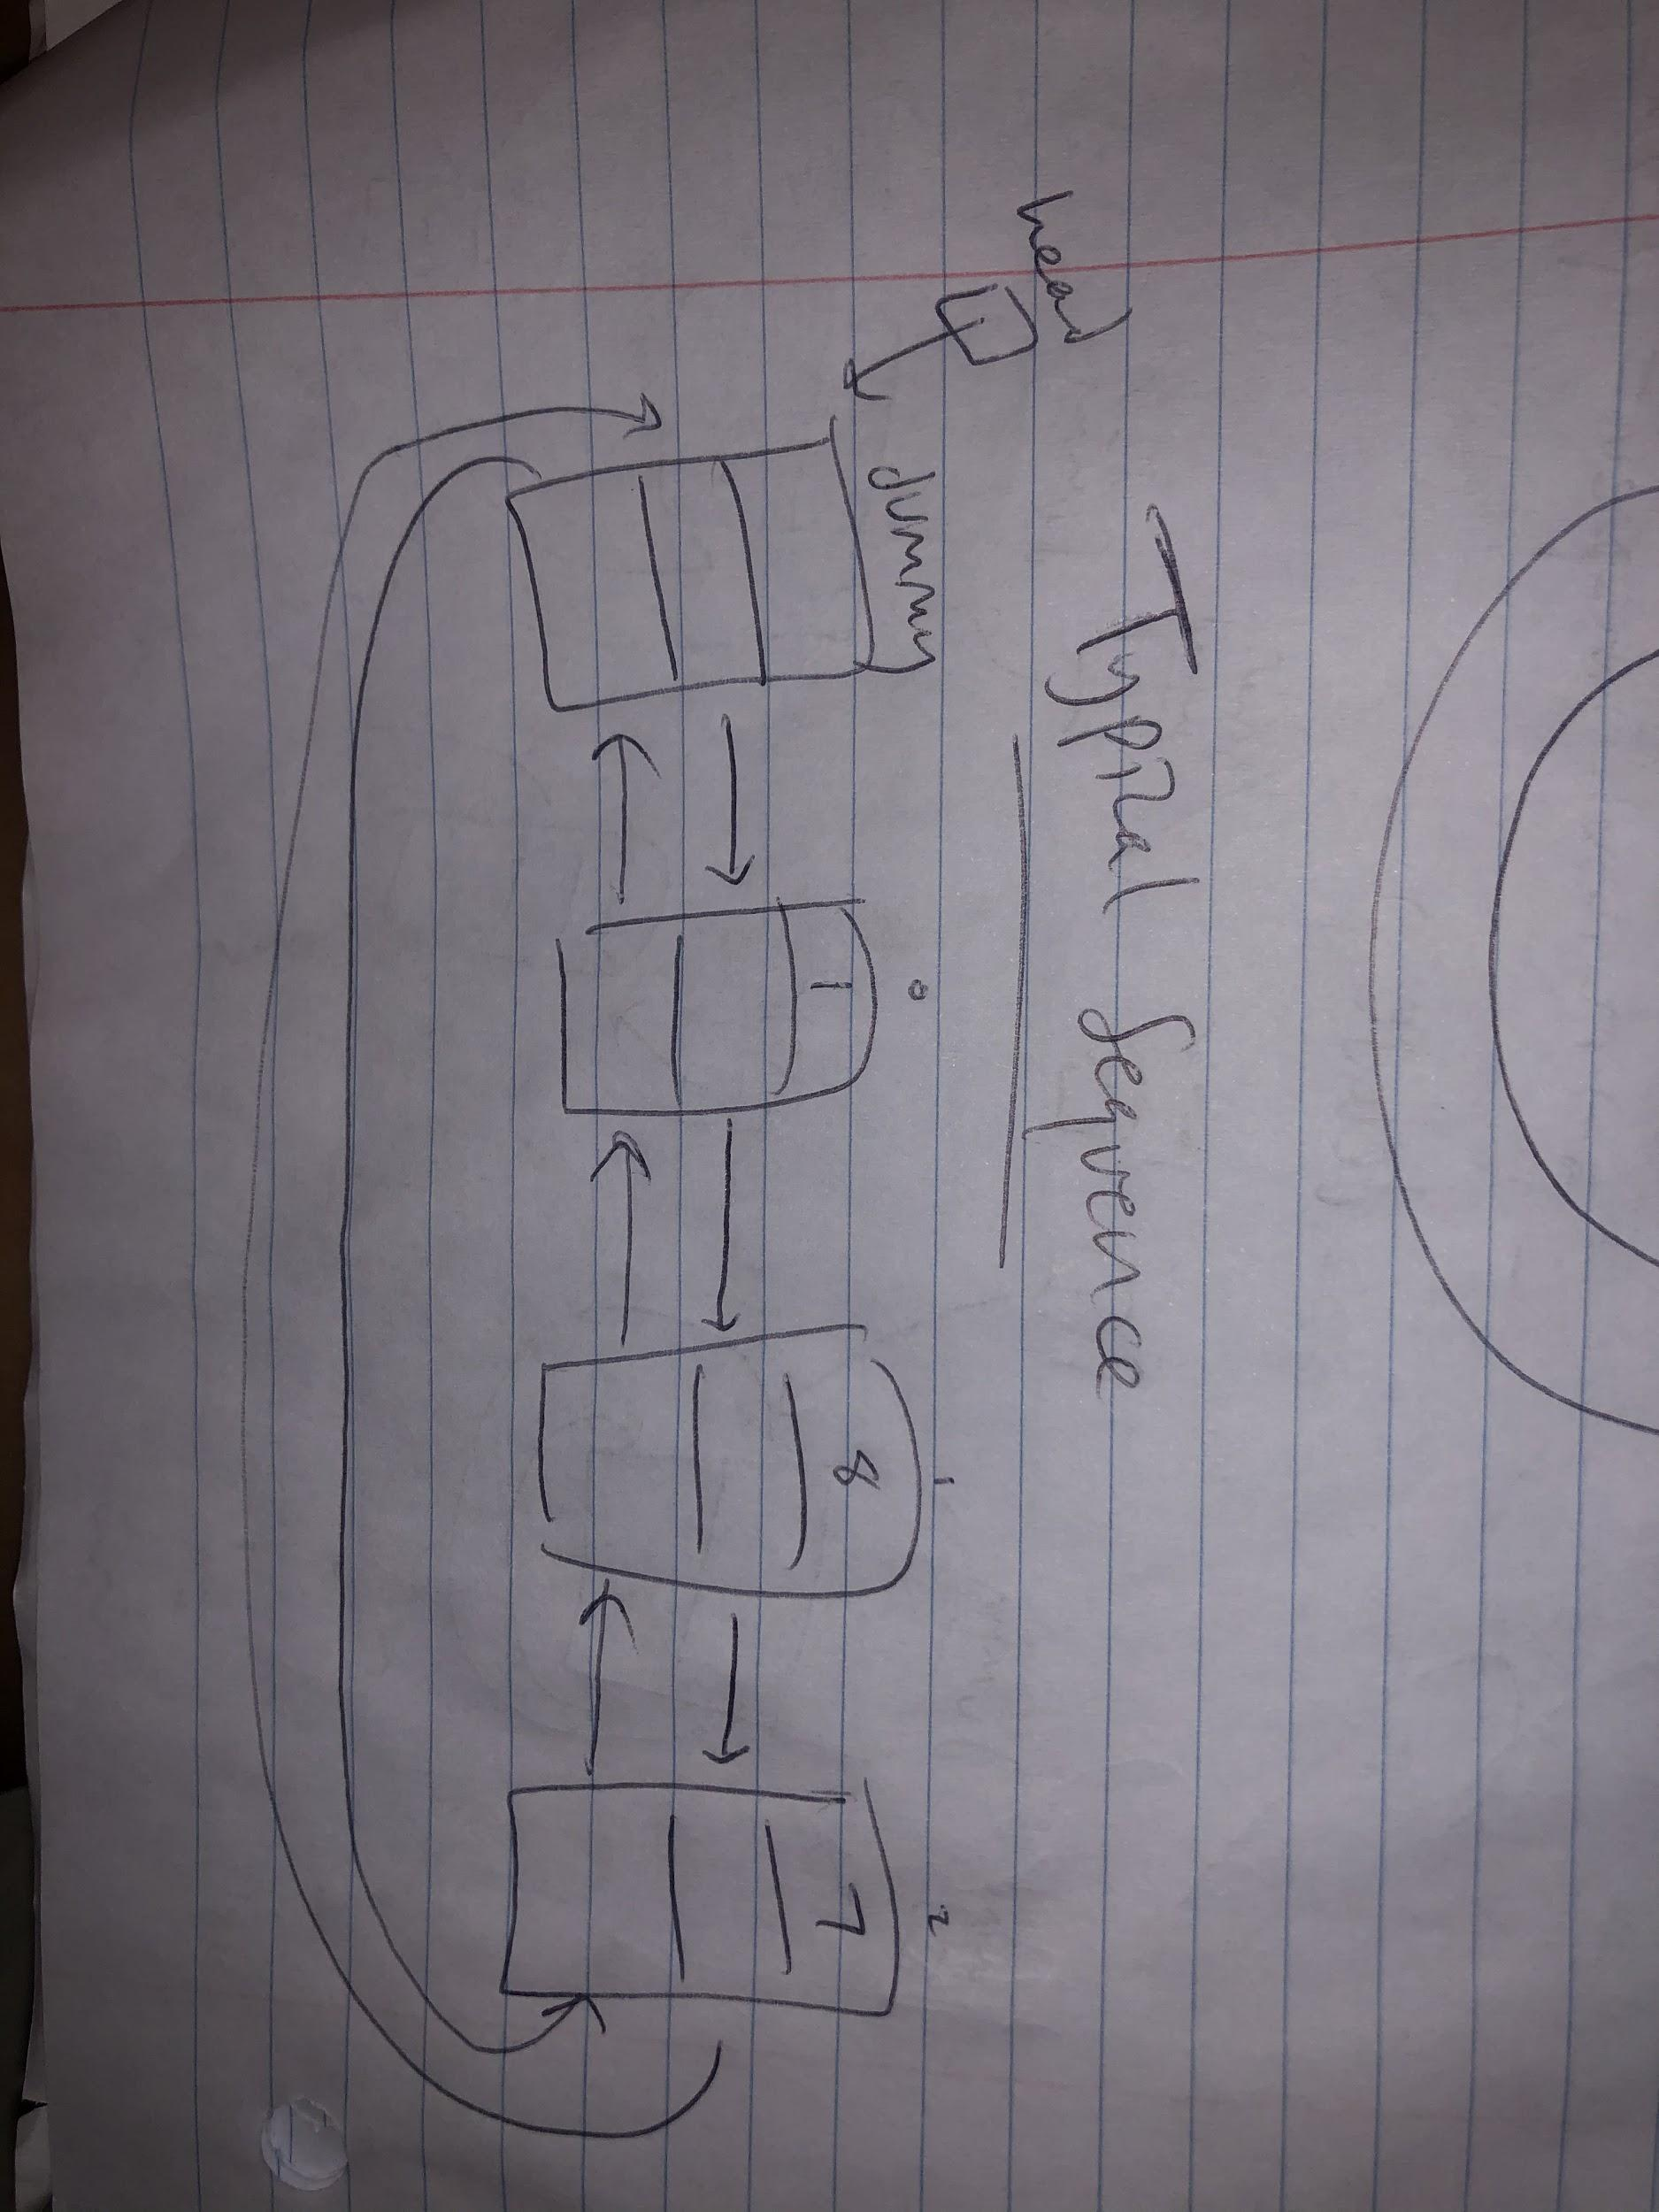 Typical Sequence
head
dummy
0 1 2
1 8 7